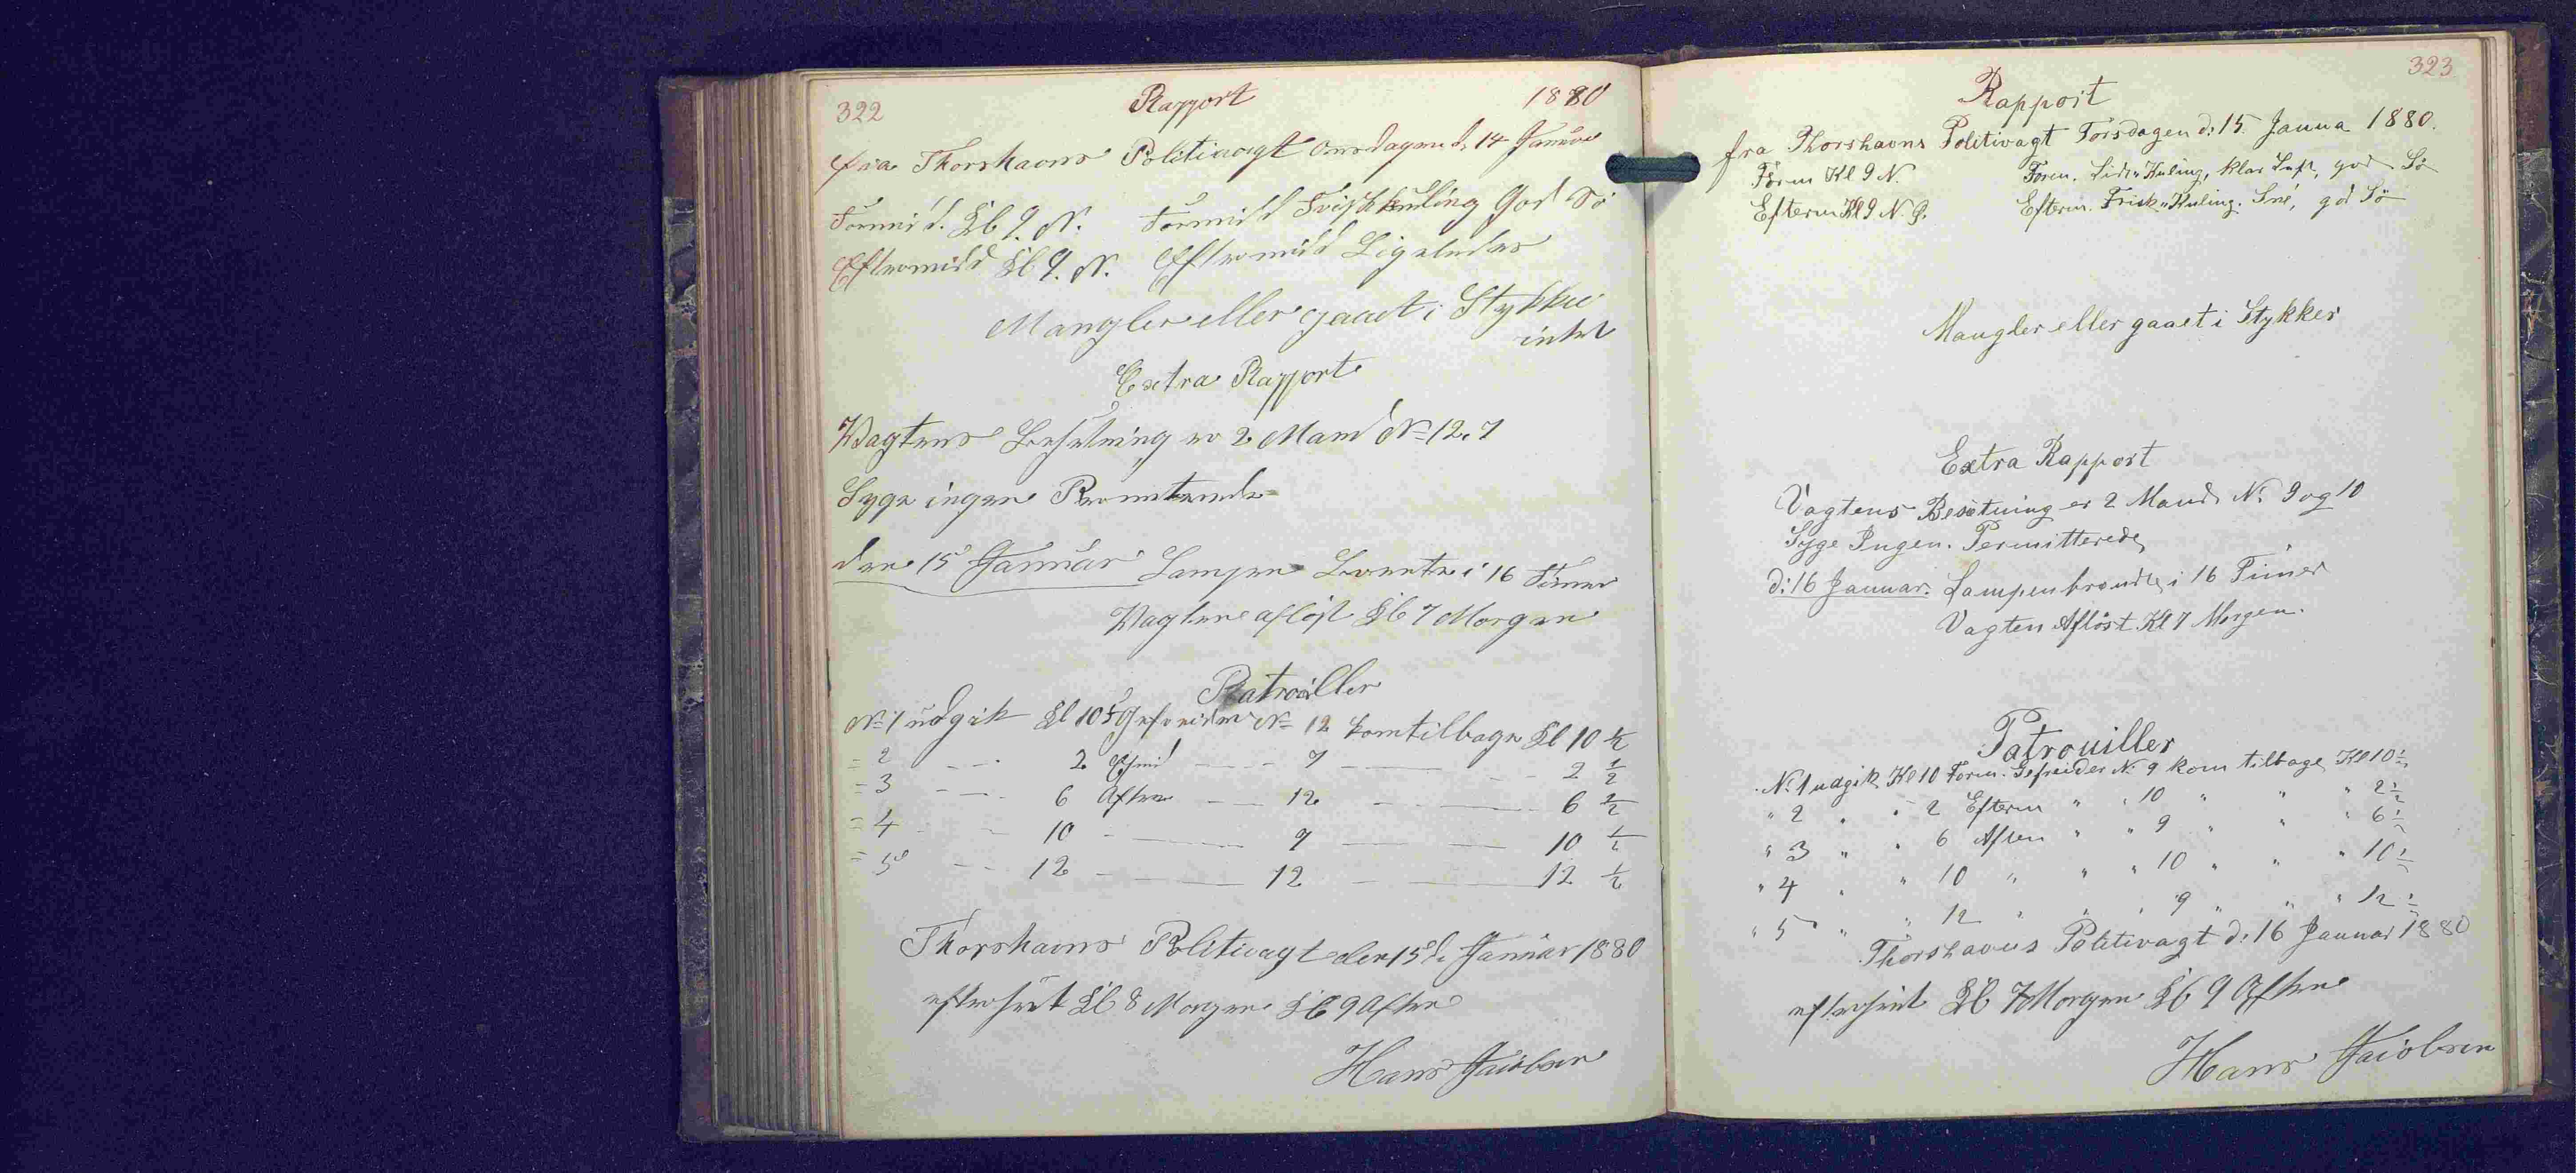 322
Rapport
1880
fra Thorshavns Politivagt Onsdagen d. 14 Januar
Formid. Kl 9. N. Formidd Frisk Kuling God Sö
Eftermidd Kl 9. N. Eftermidd Ligeledes
Mangler eller gaaet i Stykker
intet
Extra Rapport
Wagtens Besetning er 2 Mand No 12. 7
Syge ingen Permiterede
den 15 Januar Lampen Brente i 16 Timer
Wagten aflöst Kl 7 Morgen
Patroiller
No 1 udgik Kl 10 F Gefreider No 12 kom tilbage Kl 10 1/2
= 2 — 2 Efmid — 7 — 2 1/2
= 3 — 6 Aften — 12 — 6 1/2
= 4 — 10 — 7 — 10 1/2
= 5 — 12 — 12 — 12 1/2
Thorshavns Politivagt den 15 d. Januar 1880
efterseet Kl 8 Morgen Kl 9 Aften
Hans Jacobsen
323
Rapport
fra Thorshavns Politivagt Torsdagen d: 15. Janua 1880.
Form Kl 9 N. Form. Lidn Kuling, klar Luft, god Sö
Efterm Kl 9 N. Ø. Efterm. Frisk Kuling. Sné, god Sö
Mangler eller gaaet i Stykker
Extra Rapport
Vagtens Besötning er 2 Mand. No 9 og 10
Syge Ingen. Permitterede
d: 16 Januar. Lampen brændte i 16 Timer
Vagten Aflöst Kl 7 Morgen.
Patrouiller
No 1 udgik Kl 10 Form. Gefreider No 9 kom tilbage Kl 10 1/2
" 2 " " 2 Efterm " " 10 " " " 2 1/2
" 3 " " 6 Aften " " 9 " " " 6 1/2
" 4 " " 10 " " " 10 " " " 10 1/2
" 5 " " 12 " " " 9 " " " 12 1/2
Thorshavns Politivagt d: 16 Januar 1880
efterseet Kl 7 Morgen Kl 9 Aften
Hans Jacobsen